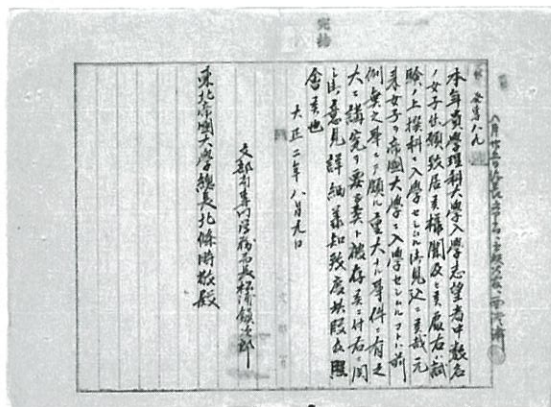 完結
本年貴學理科大學入學志望者中數名
ノ女子出願致居候樣聞及ヒ候處右ハ試
驗ノ上撰科ニ入學セシムル御見込ニ候哉元
來女子ヲ帝國大學ニ入學セシムルコトハ前
例無之事ニテ頗ル重大ナル事件ニ有之
大ニ講究ヲ要シ候ト被存候ニ付右ニ関
シ御意見詳細承知致度此段及照
會候也
大正二年八月九日
文部省專門學務局長松浦鎭次郎
東北帝國大學總長北條時敬殿